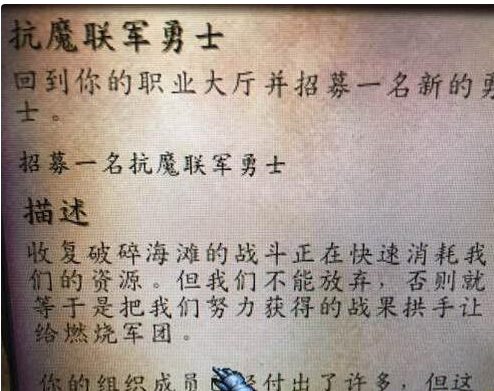 抗魔联军勇士
回到你的职业大厅并招募一名新的勇
士。
招募一名抗魔联军勇士
描述
收复破碎海滩的战斗正在快速消耗我
们的资源。但我们不能放弃，否则就
等于是把我们努力获得的战果拱手让
给燃烧军团。
你的组织成员 经付出了许多，但这